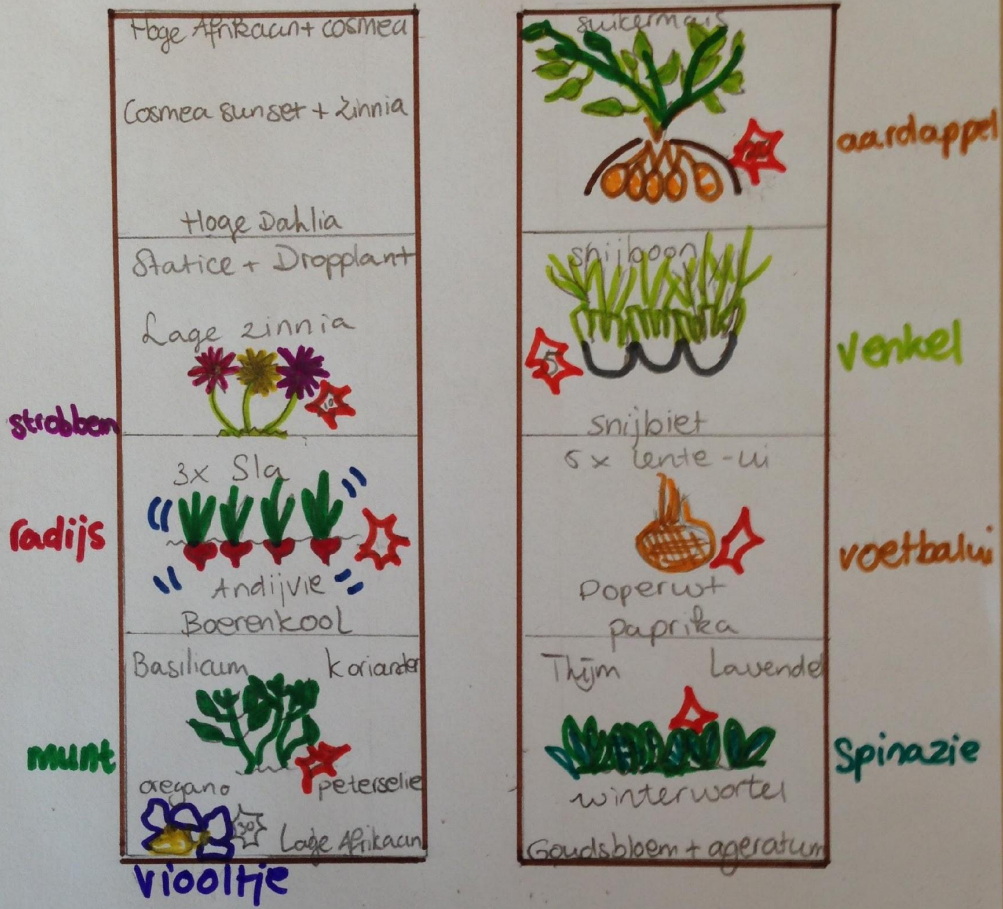 Hoge Afrikaan + cosmea
Cosmea sunset + Zinnia
Hoge Dahlia
Statice + Dropplant
Lage zinnia
strobbem
3x Sla
radijs
Andijvie
Boerenkool
Basilicum koriander
munt
oregano peterselie
30
Lage Afrikaan
viooltje
suikermais
aardappel
snijboon
5
venkel
snijbiet
5 x lente-ui
voetbalui
Doperwt
paprika
Thijm Lavendel
Spinazie
winterwortel
Goudsbloem + ageratum